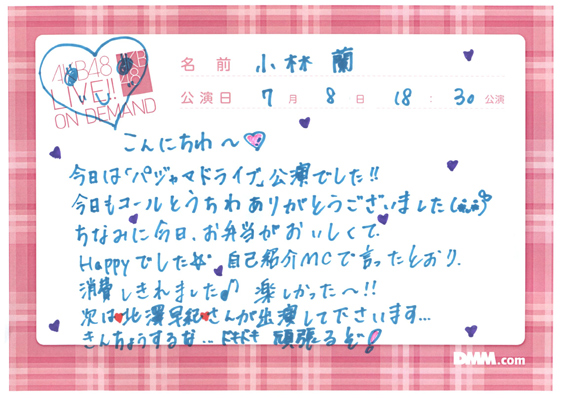 AKB48
LIVE!!
ON DEMAND
AKB48
名前 小林 蘭
公演日 7月 8日 18:30公演
こんにちわ〜
今日は「パジャマドライブ」公演でした!!
今日もコールとうちわありがとうございました(
ちなみに今日、お弁当がおいしくて
Happyでした☆ 自己紹介MCで言ったとおり、
消費しきれました♪ 楽しかった〜!!
次は♥北澤早紀♥さんが出演して下さいます...
きんちょうするな... ドキドキ 頑張るぞ!
DMM.com